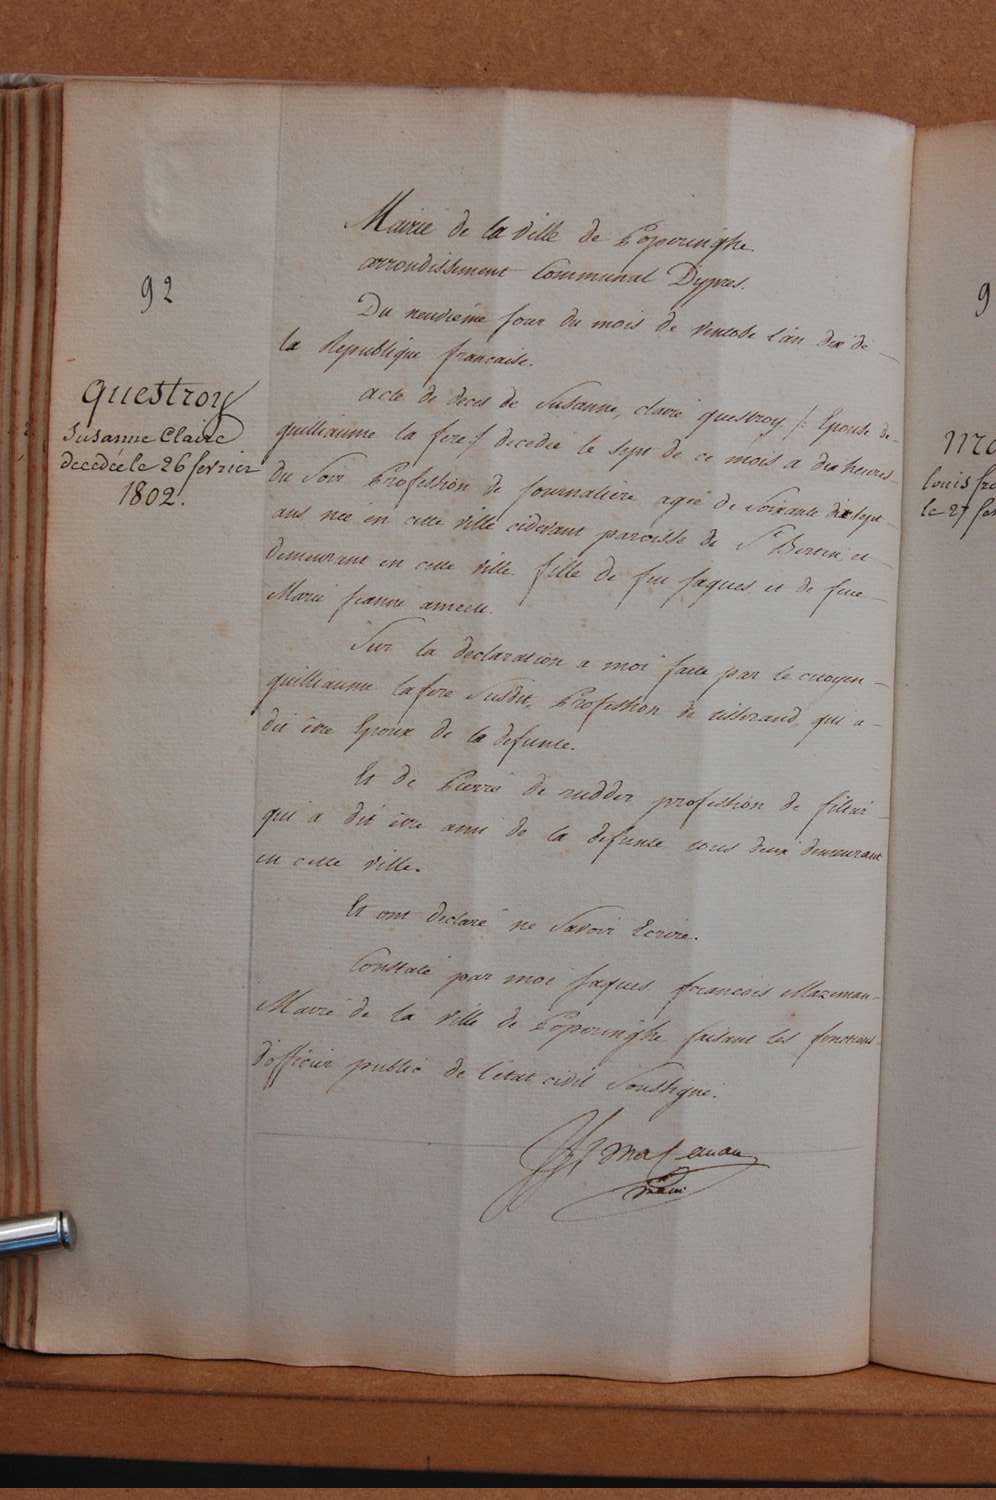 92
questroy
Susanne Claire
decedée le 26 fevrier
1802.
Mairie de la ville de Poperinghe
arrondissement Communal Dypres.
Du neuvieme jour du mois de ventose l'an dix de
la Republique francaise.
acte de deces de Susanne, claire questroy /: Epouse de
guilliaume la fere :/ decedée le sept de ce mois a dix heures
du Soir Profession de journaliere agée de Soixante dix sept
ans née en cette ville cidevant paroisse de St Bertin et
demeurant en cette ville fille de feu Jaques et de feue
Marie Jeanne
Sur la declaration a moi faite par le citoyen
guilliaume lafere Susdit, Profession de tisserand, qui a
dit être Epoux de la defunte.
Et de Pierre de rudder profession de
qui a dit être ami de la defunte tous deux demeurant
en cette ville.
Et ont declaré ne Savoir Ecrire.
Constaté par moi Jaques francois Mazeman
Maire de la ville de Poperinghe faisant les fonctions
d'officier public de l'etat civil Soussigné.
JF Mazeman
maire
9
louis fr
le 27 fe